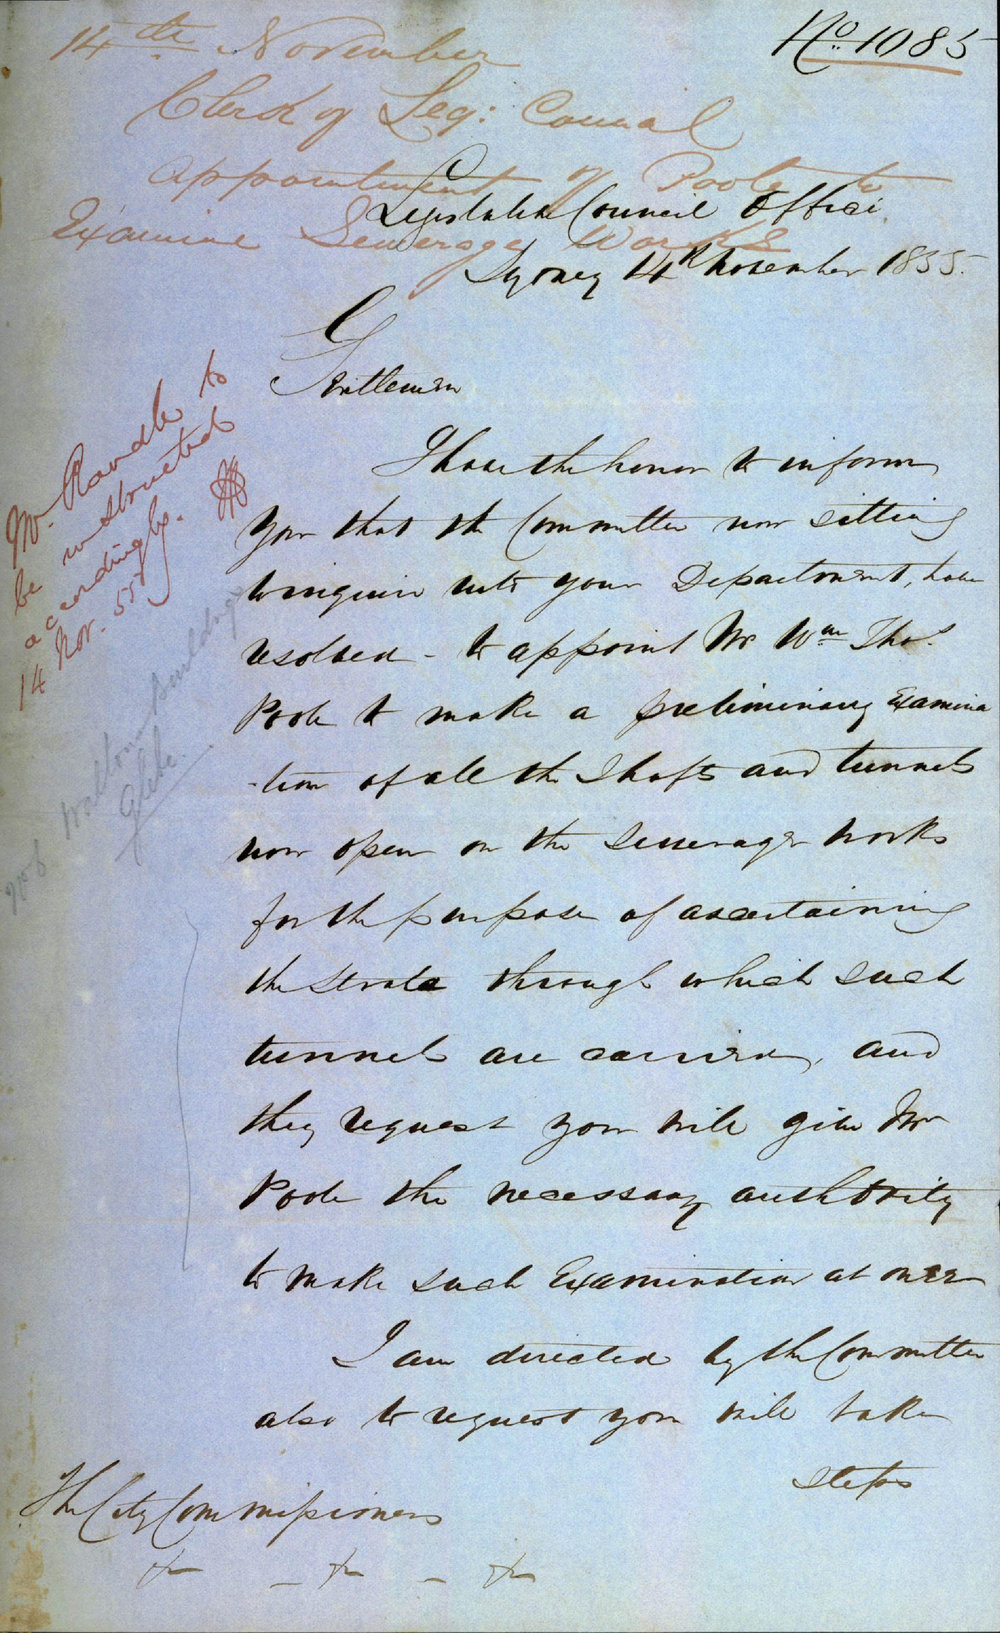 No. 1085
14th November
Clerk of Leg: Council
appointment of Poole to
Examine Sewerage Works
Legislative Council Office
Sydney 14th November 1855.
Gentlemen
I have the honor to inform
you that the Committee now sitting
to inquire into your Department, have
resolved - to appoint Mr Wm Thos.
Poole to make a preliminary Examina
-tion of all the Shafts and tunnels
now open on the Sewerage works
for the purpose of ascertaining
the Strata through which such
tunnels are carried, and
they request you will give Mr
Poole the necessary authority
to make such Examination at once
I am directed by the Committee
also to request you will take
steps
The City Commissioners
Mr. Randle to
be instructed
accordingly.
14 Nov. 55
buildings
Glebe